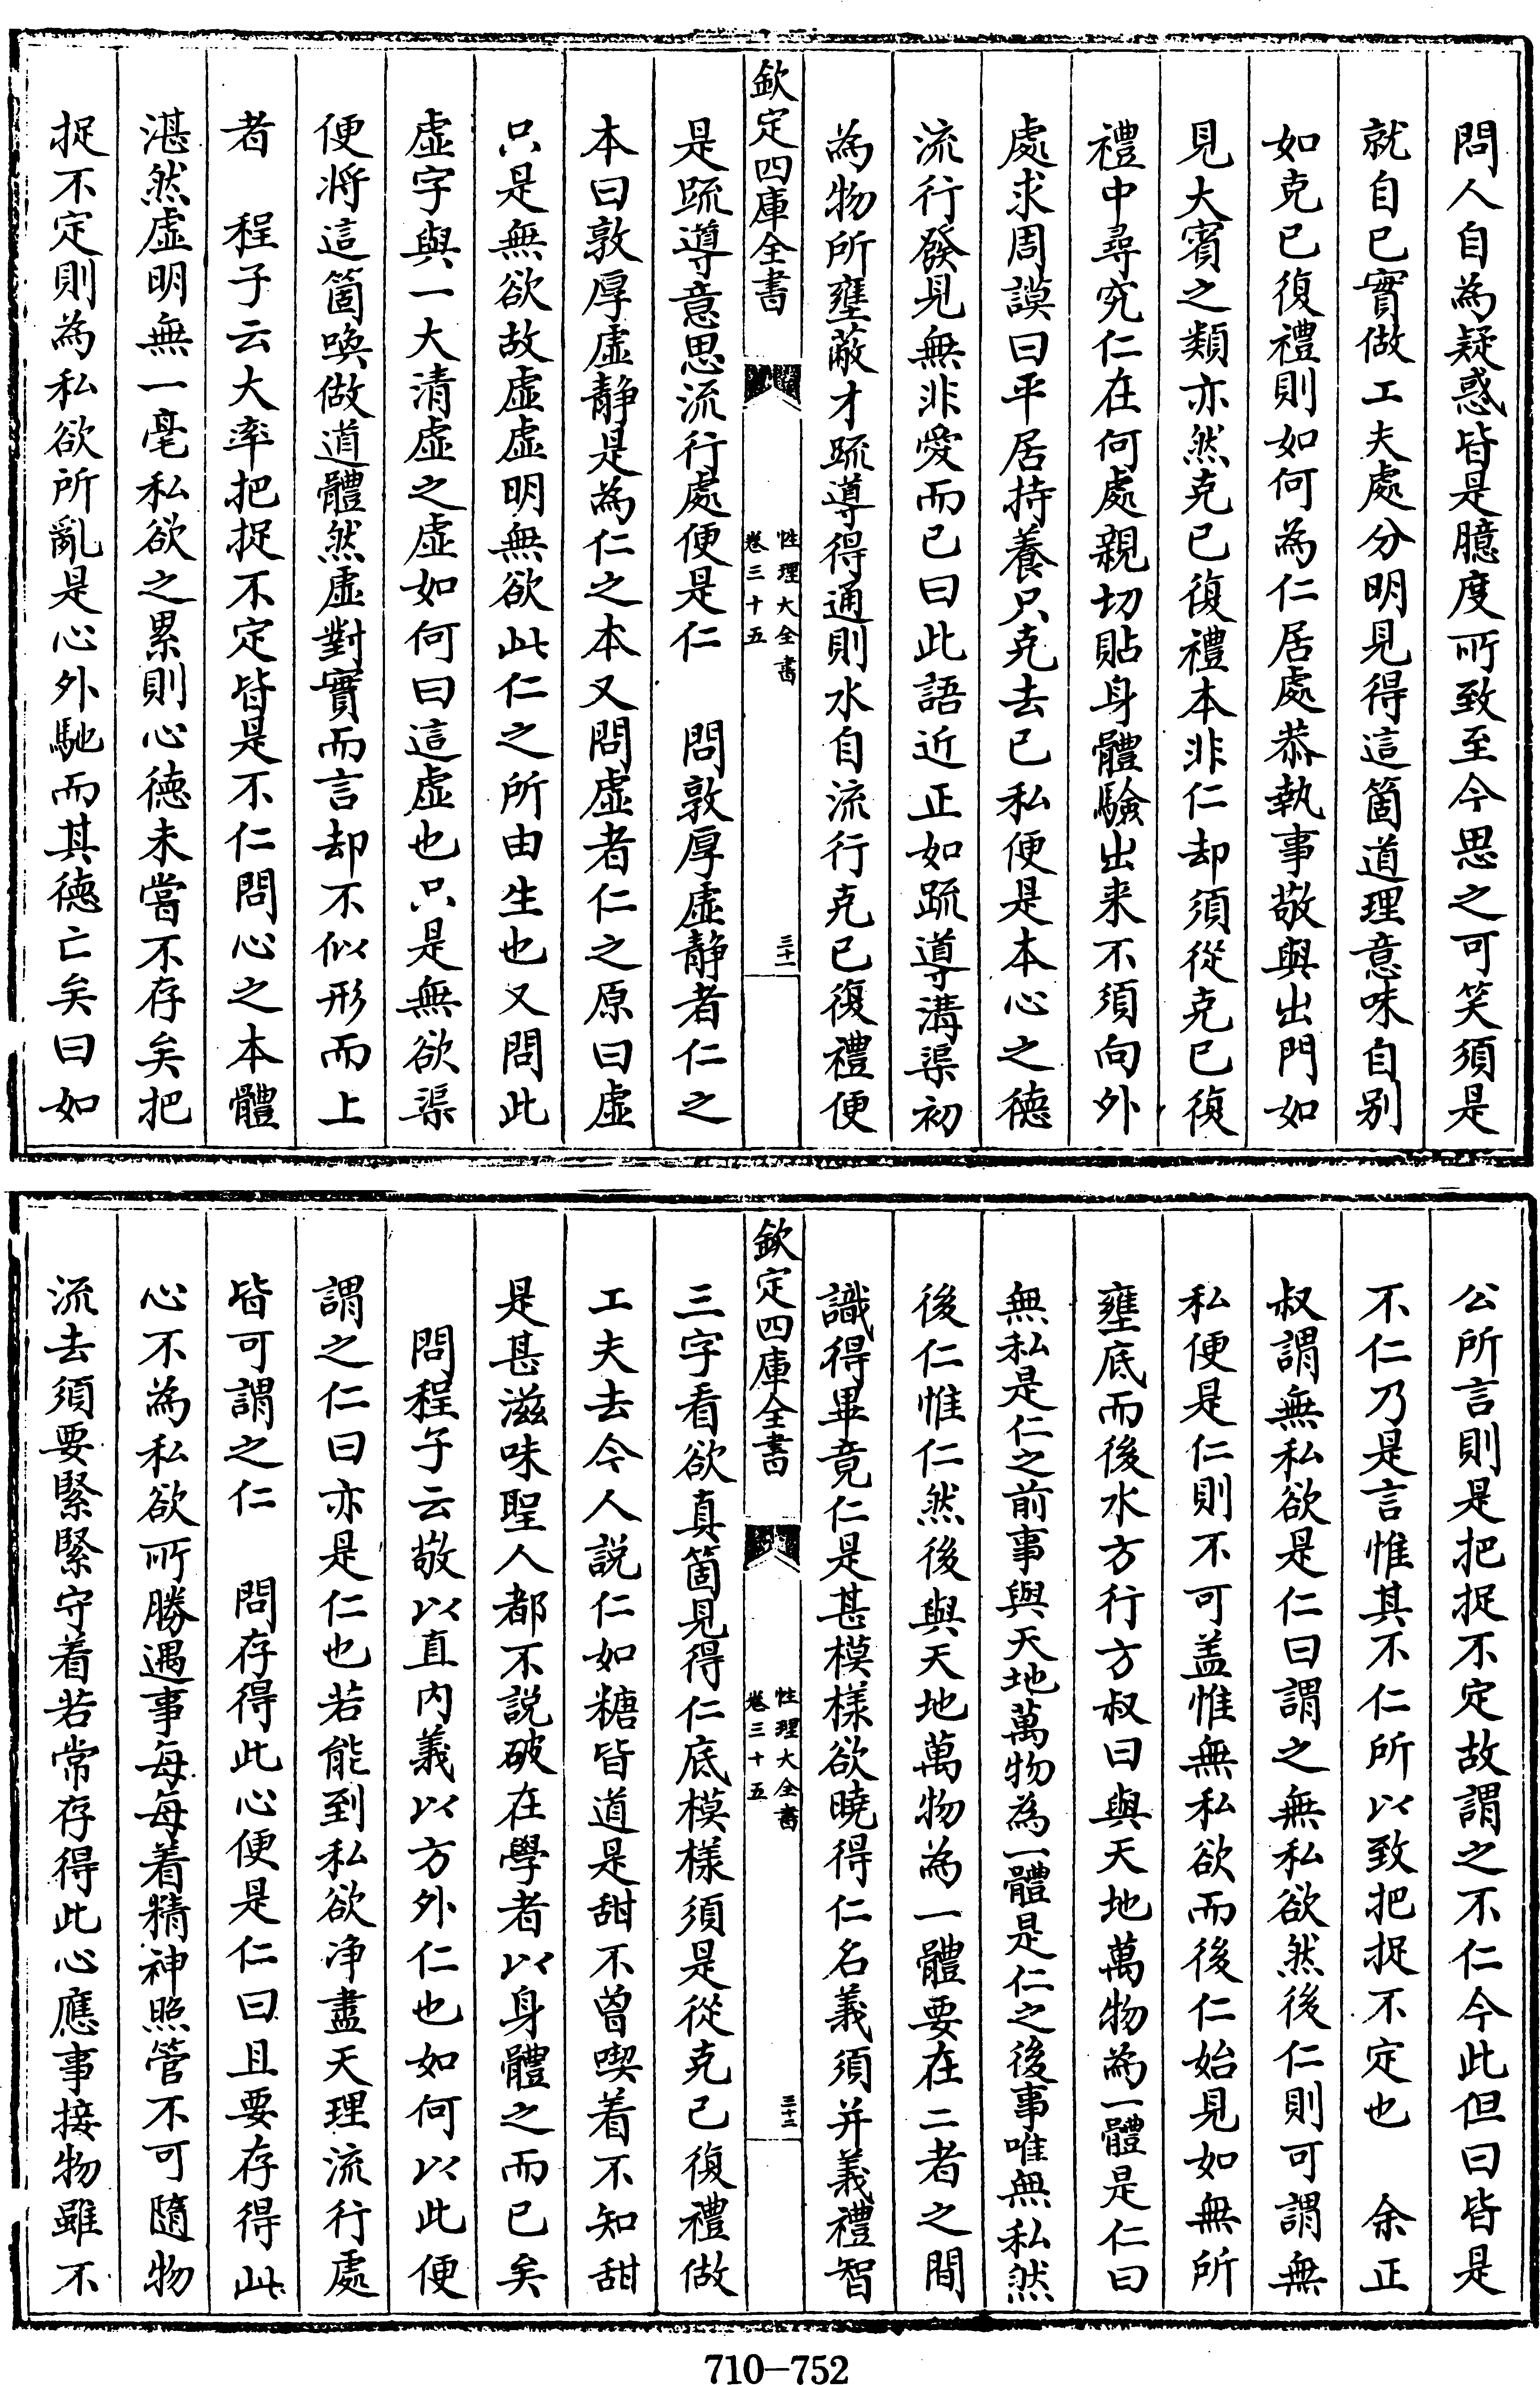 問人自為疑惑皆是臆度所致至今思之可笑須是
就自己實做工夫處分明見得這箇道理意味自别
如克己復禮則如何為仁居處恭執事敬與出門如
見大賓之類亦然克己復禮本非仁却須從克己復
禮中尋究仁在何處親切貼身體驗出来不須向外
處求周謨曰平居持養只克去己私便是本心之德
流行發見無非愛而已曰此語近正如疏導溝渠初
為物所壅蔽才疏導得通則水自流行克己復禮便
欽定四庫全書
性理大全書
卷三十五
三十一
是疏導意思流行處便是仁　問敦厚虚静者仁之
本曰敦厚虚静是為仁之本又問虚者仁之原曰虚
只是無欲故虚虚明無欲此仁之所由生也又問此
虚字與一大清虚之虚如何曰這虚也只是無欲渠
便將這箇喚做道體然虚對實而言却不似形而上
者　程子云大率把捉不定皆是不仁問心之本體
湛然虚明無一毫私欲之累則心德未嘗不存矣把
捉不定則為私欲所亂是心外馳而其德亡矣曰如
公所言則是把捉不定故謂之不仁今此但曰皆是
不仁乃是言惟其不仁所以致把捉不定也　余正
叔謂無私欲是仁曰謂之無私欲然後仁則可謂無
私便是仁則不可盖惟無私欲而後仁始見如無所
壅底而後水方行方叔曰與天地萬物為一體是仁曰
無私是仁之前事與天地萬物為一體是仁之後事唯無私然
後仁惟仁然後與天地萬物為一體要在二者之間
識得畢竟仁是甚模樣欲曉得仁名義須并義禮智
欽定四庫全書
性理大全書
卷三十五
三十二
三字看欲真箇見得仁底模樣須是從克己復禮做
工夫去今人説仁如糖皆道是甜不曾喫着不知甜
是甚滋味聖人都不説破在學者以身體之而已矣
問程子云敬以直内義以方外仁也如何以此便
謂之仁曰亦是仁也若能到私欲净盡天理流行處
皆可謂之仁　問存得此心便是仁曰且要存得此
心不為私欲所勝遇事每每着精神照管不可隨物
流去須要緊緊守着若常存得此心應事接物雖不
710-752